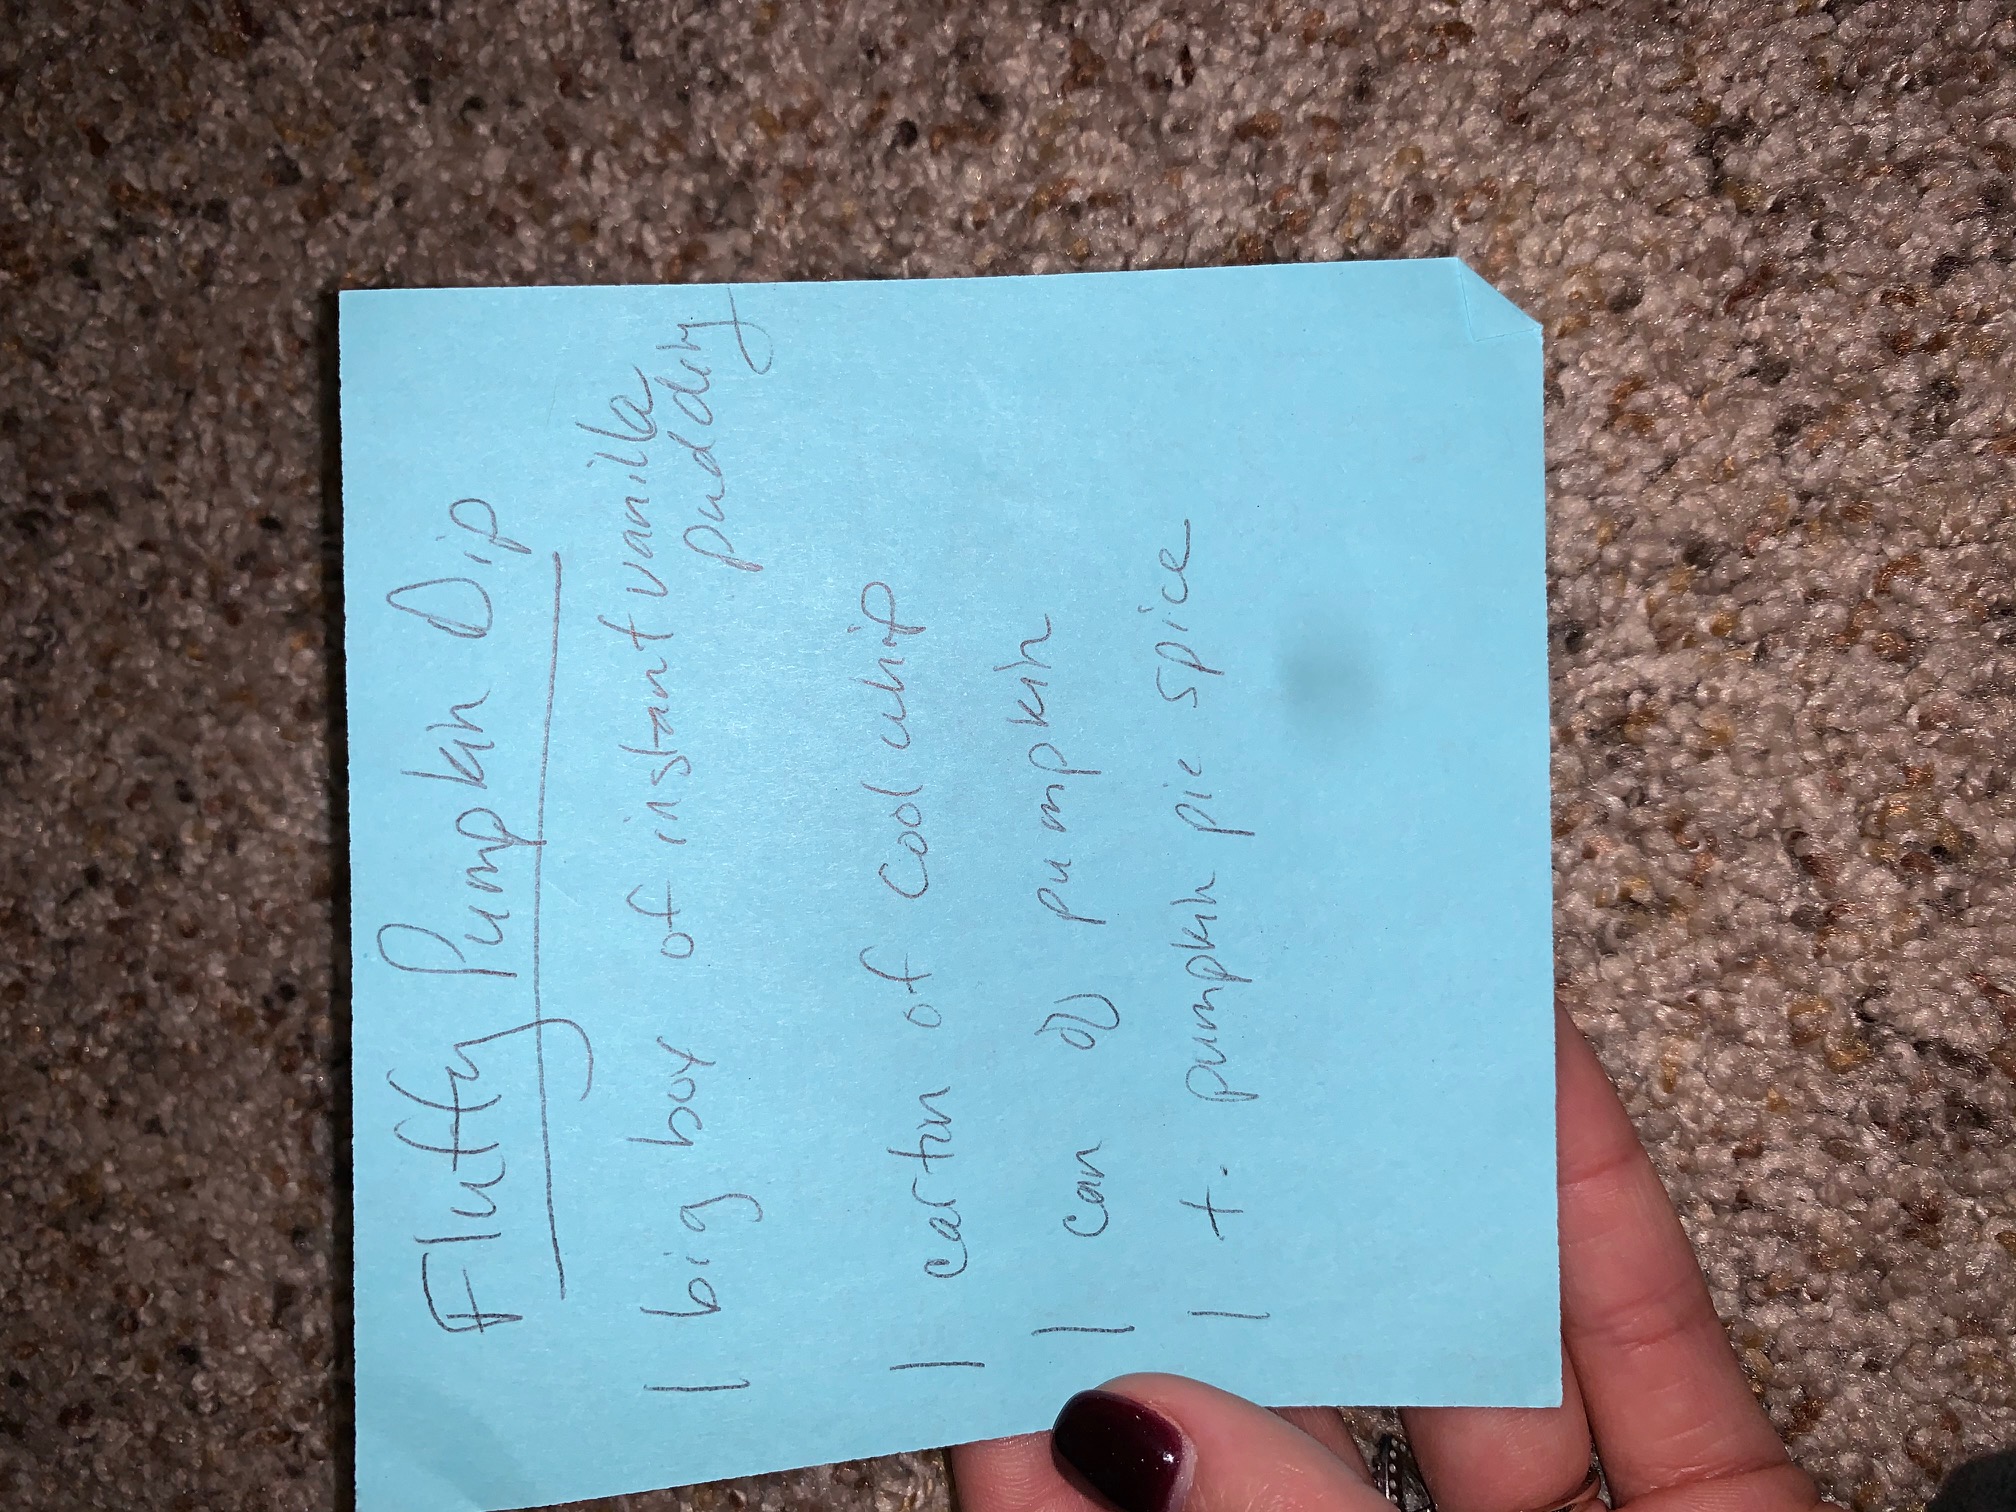 Fluffy Pumpkin Dip
1 big box of instant vanilla
pudding
1 carton of Cool whip
1 can of pumpkin
1 t. pumpkin pie spice